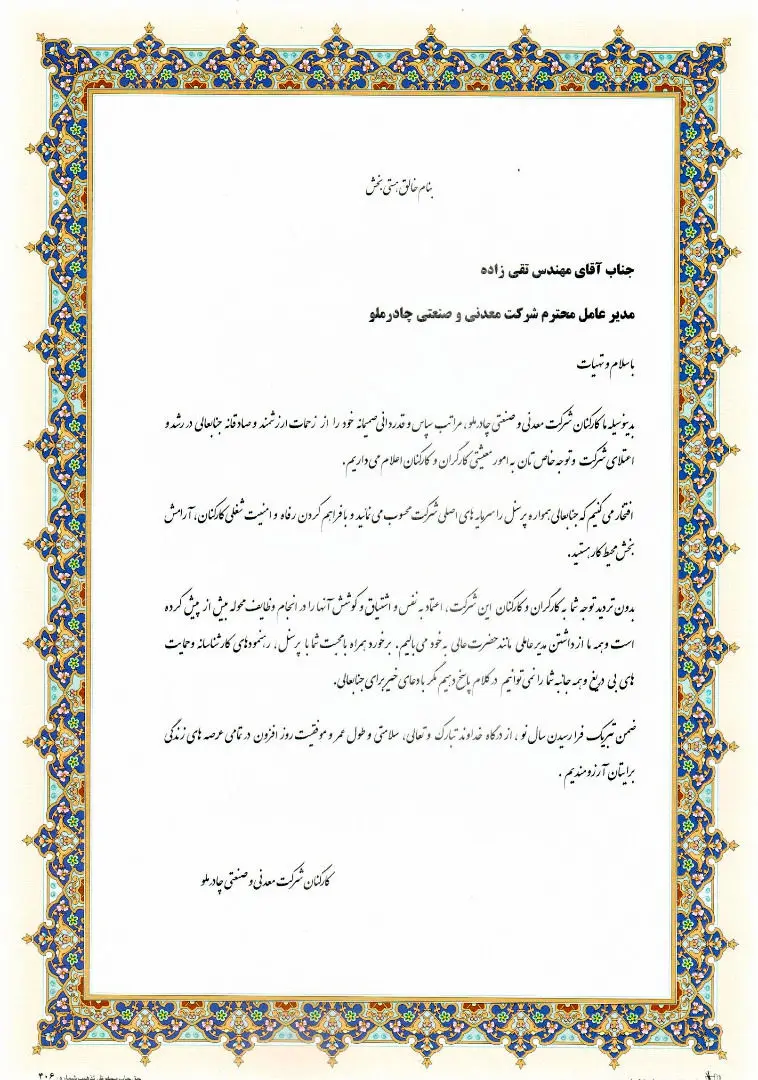 بنام خالق هستی بخش
جناب آقای مهندس تقی زاده
مدیر عامل محترم شرکت معدنی و صنعتی چادرملو
باسلام و تحیات
بدینوسیله ما کارکنان شرکت معدنی و صنعتی چادرملو، مراتب سپاس و قدردانی صمیمانه خود را از زحمات ارزشمند و صادقانه جنابعالی در رشد و
اعتلای شرکت و توجه خاص تان به امور معیشتی کارگران و کارکنان اعلام می داریم.
افتخار می کنیم که جنابعالی همواره پرسنل را سرمایه های اصلی شرکت محسوب می نمائید و با فراهم کردن رفاه و امنیت شغلی کارکنان، آرامش
بخش محیط کار هستید.
بدون تردید توجه شما به کارگران و کارکنان این شرکت، اعتماد به نفس و اشتیاق و کوشش آنها را در انجام وظایف محوله بیش از پیش کرده
است و همه ما از داشتن مدیرعاملی مانند حضرت عالی به خود می بالیم. برخورد همراه با محبت شما با پرسنل، رهنمودهای کارشناسانه و حمایت
های بی دریغ و همه جانبه شما را نمی توانیم در کلام پاسخ دهیم مگر با دعای خیر برای جنابعالی.
ضمن تبریک فرا رسیدن سال نو، از درگاه خداوند تبارک و تعالی، سلامتی و طول عمر و موفقیت روز افزون در تمامی عرصه های زندگی
برایتان آرزومندیم.
کارکنان شرکت معدنی و صنعتی چادرملو
۴۰۶